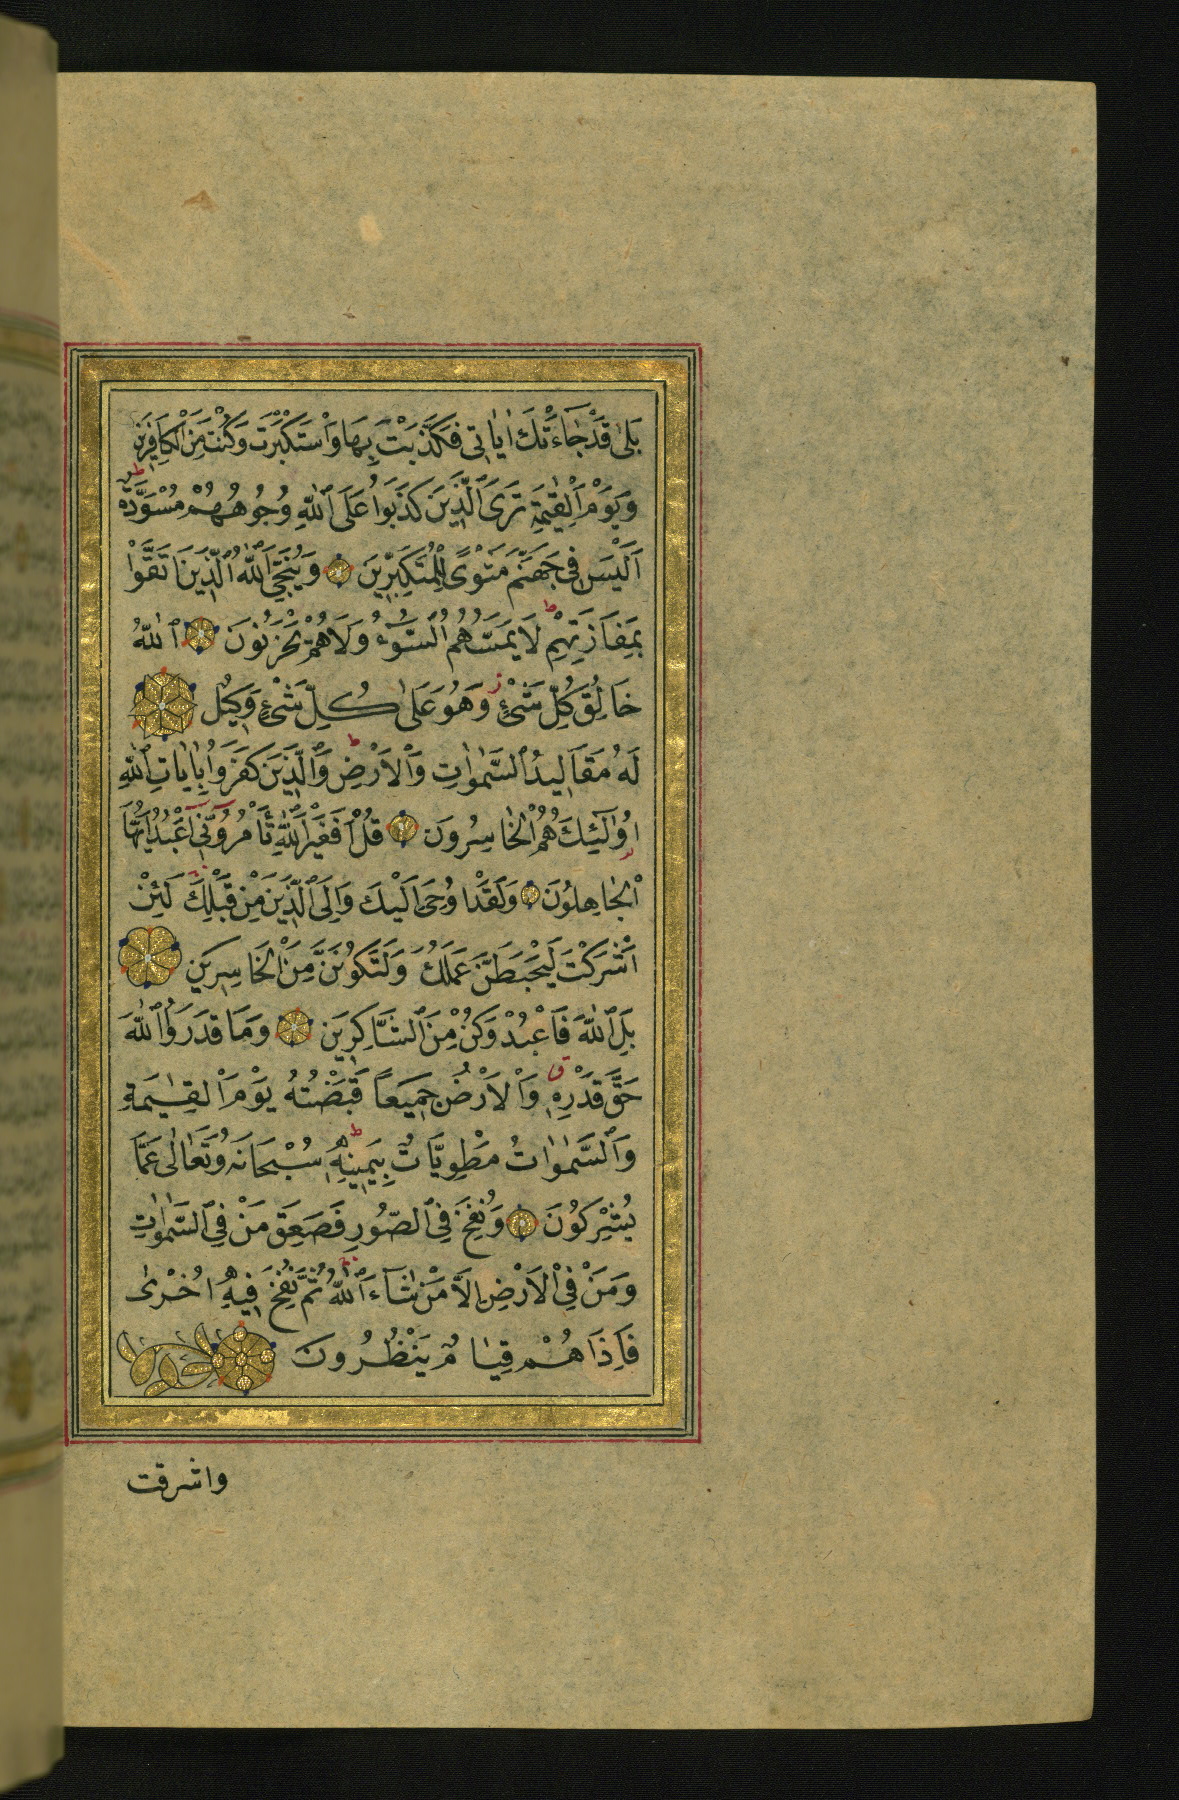 بَلٰى قَدْ جَاءَتْكَ اٰيَاتِى فَكَذَّبْتَ بِهَا وَاسْتَكْبَرْتَ وَكُنْتَ مِنَ الْكَافِرِينَ
وَيَوْمَ الْقِيٰمَةِ تَرَى الَّذِينَ كَذَبُوا عَلَى اللّٰهِ وُجُوهُهُمْ مُسْوَدَّةٌ ط
اَلَيْسَ فِى جَهَنَّمَ مَثْوًى لِلْمُتَكَبِّرِينَ وَيُنَجِّى اللّٰهُ الَّذِينَ اتَّقَوْا
بِمَفَازَتِهِمْ ط لَا يَمَسُّهُمُ السُّوءُ وَلَا هُمْ يَحْزَنُونَ اَللّٰهُ
خَالِقُ كُلِّ شَىْءٍ ز وَهُوَ عَلٰى كُلِّ شَىْءٍ وَكِيلٌ
لَهُ مَقَالِيدُ السَّمٰوَاتِ وَالْاَرْضِ ط وَالَّذِينَ كَفَرُوا بِاٰيَاتِ اللّٰهِ
اُولٰئِكَ هُمُ الْخَاسِرُونَ قُلْ اَفَغَيْرَ اللّٰهِ تَأْمُرُونِّى اَعْبُدُ اَيُّهَا
الْجَاهِلُونَ وَلَقَدْ اُوحِىَ اِلَيْكَ وَاِلَى الَّذِينَ مِنْ قَبْلِكَ لَئِنْ
اَشْرَكْتَ لَيَحْبَطَنَّ عَمَلُكَ وَلَتَكُونَنَّ مِنَ الْخَاسِرِينَ
بَلِ اللّٰهَ فَاعْبُدْ وَكُنْ مِنَ الشَّاكِرِينَ وَمَا قَدَرُوا اللّٰهَ
حَقَّ قَدْرِهِ ق وَالْاَرْضُ جَمِيعًا قَبْضَتُهُ يَوْمَ الْقِيٰمَةِ
وَالسَّمٰوَاتُ مَطْوِيَّاتٌ بِيَمِينِهِ ط سُبْحَانَهُ وَتَعَالٰى عَمَّا
يُشْرِكُونَ وَنُفِخَ فِى الصُّورِ فَصَعِقَ مَنْ فِى السَّمٰوَاتِ
وَمَنْ فِى الْاَرْضِ اِلَّا مَنْ شَاءَ اللّٰهُ ثُمَّ نُفِخَ فِيهِ اُخْرٰى
فَاِذَا هُمْ قِيَامٌ يَنْظُرُونَ
واشرقت